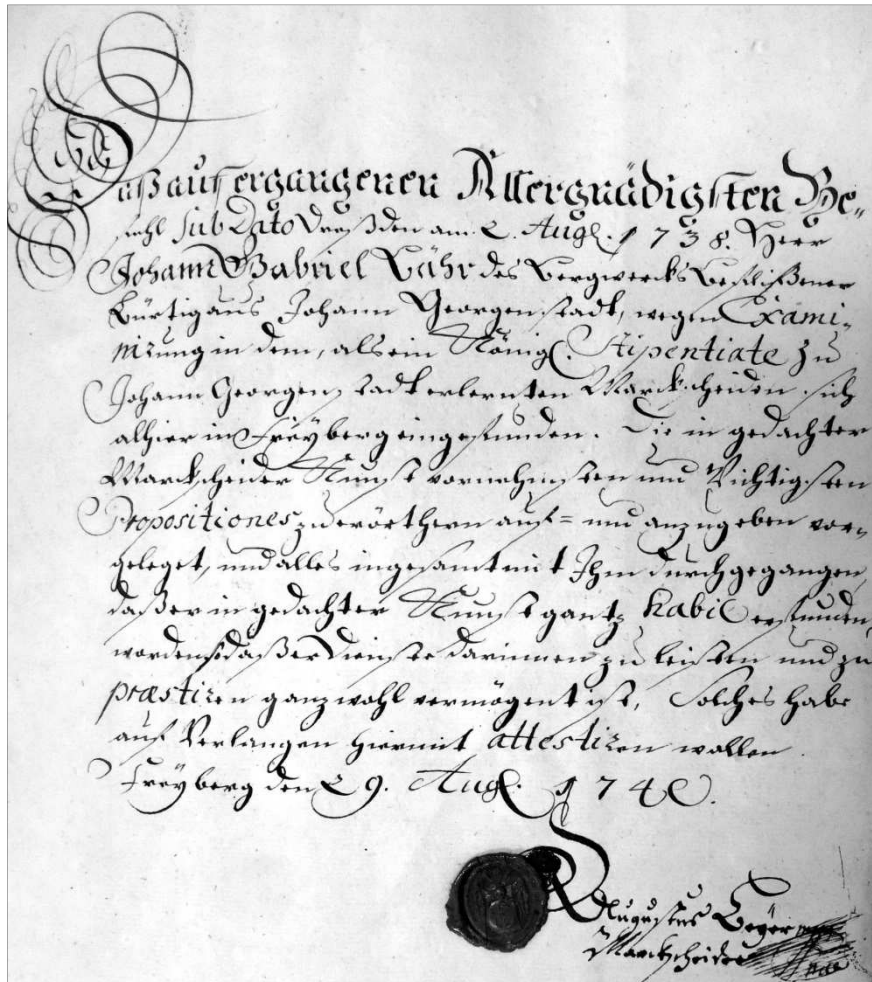 Daß auf ergangenen Allergnädigsten Be-
fehl sub Dato Dreßden am 2. Aug. 1738. Herr
Johann Gabriel Bähr des Bergwercks Beflißener
bürtig aus Johann Georgenstadt, wegen Exami-
nirung in dem, als ein Königl. Stipentiate zu
Johann Georgenstadt erlernten Marckscheiden sich
alhier in Freyberg eingefunden. Die in gedachter
Marckscheider Kunst vornehmsten und Wichtigsten
Propositiones zu erörthern auf= und anzugeben vor-
geleget, und alles ingesamt mit Ihm durchgegangen,
daß er in gedachter Kunst gantz habil erfunden,
worden, daß er Dienste darinnen zu leisten und zu
præstiren ganz wohl vermögent ist, Solches habe
auf Verlangen hiermit attestiren wollen.
Freyberg den 29. Aug. 1740.
Augustus Beyer
Marckscheider